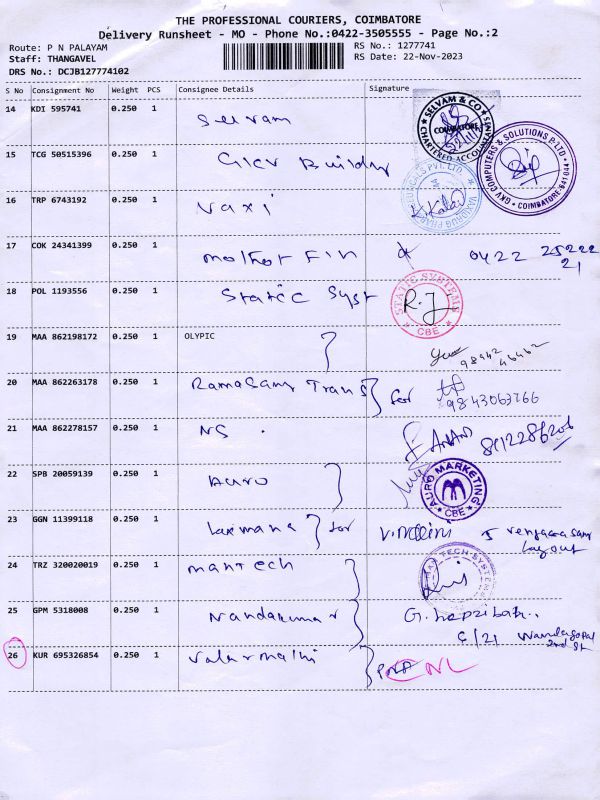 THE PROFESSIONAL COURIERS, COIMBATORE
Delivery Runsheet - MO - Phone No.:0422-3505555 - Page No.:2
Route: P N PALAYAM
RS No.: 1277741
Staff: THANGAVEL
RS Date: 22-Nov-2023
DRS No.: DCJB127774102
S No Consignment No Weight PCS Consignee Details Signature
14 KDI 595741 0.250 1 Selvam
SELVAM & CO
COIMBATORE
CHARTERED ACCOUNTANTS
15 TCG 50515396 0.250 1
GKV COMPUTERS & SOLUTIONS P.LTD
COIMBATORE-641044
16 TRP 6743192 0.250 1 Vaxi
17 COK 24341399 0.250 1 Fin 0422 25222
21
18 POL 1193556 0.250 1 Static Syst R.J
STATIC SYSTEMS
CBE
19 MAA 862198172 0.250 1 OLYPIC
98442
46462
20 MAA 862263178 0.250 1 Ramasamy Trans for
9843063766
21 MAA 862278157 0.250 1 NS. ANAND
22 SPB 20059139 0.250 1 Auro
AURO MARKETING
CBE
23 GGN 11399118 0.250 1 Laxmana for
Layout
24 TRZ 320020019 0.250 1 Mantech
TECH SYSTEMS
25 GPM 5318008 0.250 1 Nandakumar G. hepzibah..
2nd St
26 KUR 695326854 0.250 1 Valarmathi NL